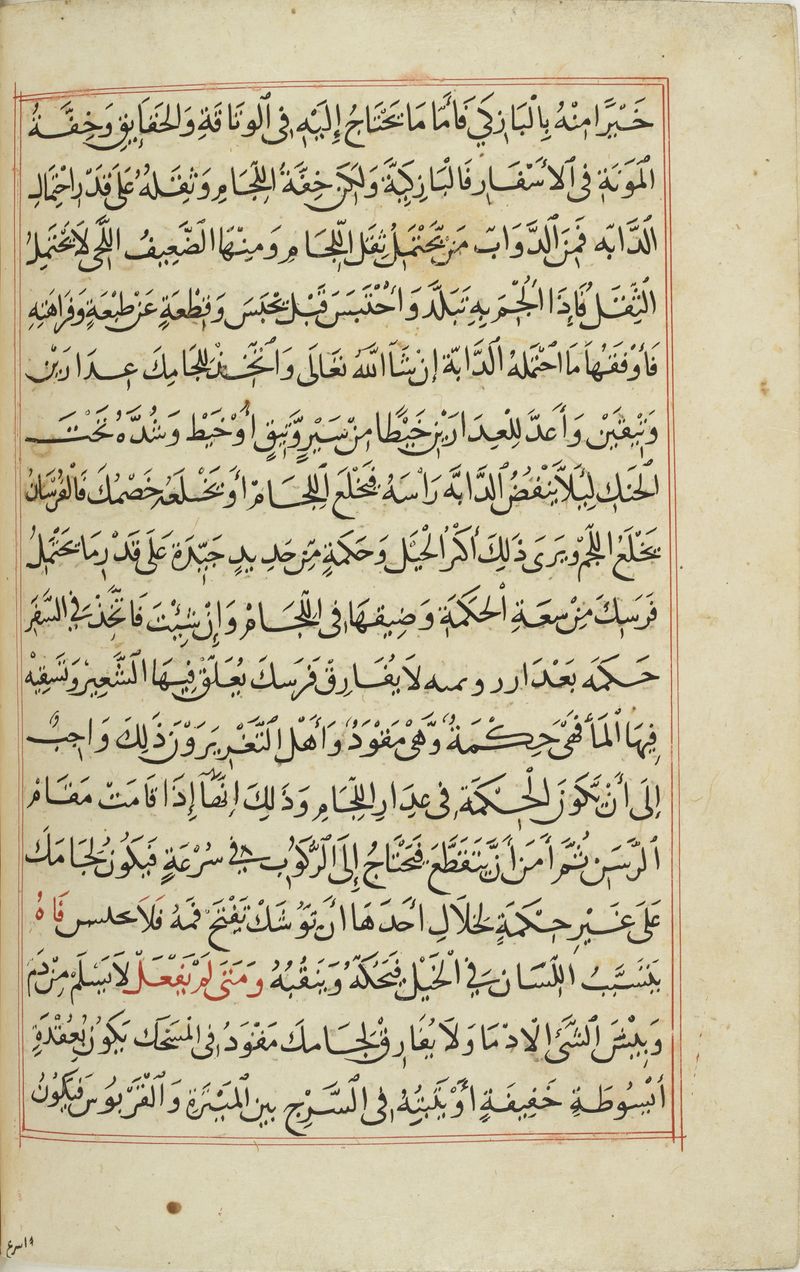 خَيْرًا مِنْهُ بِالْبَازِكِي فَأَمَّا مَا يَحْتَاجُ إِلَيْهِ فِى الْوَثَاقَةِ وَالحَقَايِقِ وَخِفَّةُ
المَوَنَةِ فِى الأَسْفَارِ فَالْبَازِكِيَّةُ وَلَكِنْ خِفَّةُ اللِّجَامِ وَثِقَلُهُ عَلَى قَدْرِ احْتِمَالِ
الدَّابَّه فَمِنَ الدَّوَابِّ مَن يَحْتَمِلُ ثِقَلَ اللِّجَامِ وَمِنْهَا الضَّعِيفُ اللَّحْى لَا يَحْتَمِلُ
الثِّقَلَ فَإِذَا أُلْجِمَ بِهِ تَبَلَّدَ وَاحْتَبَسَ قَبْلَ يُحْبَسَ وَقَطَعَهُ عَنْ طَبْعِهِ وَفَرَاهَتِهِ
فَأَوْفَقُهَا مَا احْتَمَلَهُ الدَّابَّة إِنْ شَآ اللَّهُ تَعَالَى وَاتَّخِذْ لِلِجَامِكَ عِدَارَيْنِ
وَثِيقَيْنِ وَأَعِدَّ لِلْعِدَارَيْنِ خَيْطًا مِنْ سَيْرٍ وَثِيقٍ أَوْ خَيْط وَشُدَّهُ تَحْتَ
الحَنَكِ لِيَلَّا يَنْفُضُ الدَّابَّه رَاْسَهُ فَيَخْلَعَ اللِّجَامَ أَوْ يَخْلَعُه خَصْمُكَ فَالْفُرْسَانُ
يَخْلَعُ اللُّجُمَ وَيَرَى ذَلِكَ أَكْثَرُ الْخَيْلِ وَحَكَمَةٍ مِنْ حَدِيدٍ جَيِّدَةٍ عَلَى قَدْرِ مَا يَحْتَمِلُ
فَرَسِكَ مِنْ سِعَةِ الْحَكَمَة وَضِيقِهَا فِى اللِّجَامْ وَإِنْ شِئْتَ فَاتَّخِذْ فِى السَّفَرِ
حَكَمَه بَعْدَا لَا يُفَارِقُ فَرَسَكَ يُعَلَّقُ فِيهَا الشَّعِيرُ وَتَسْقِيْهِ
فِيهَا الْمَأَ فَهْىَ حَكَمَةٌ وَهْىَ مَقْوَدٌ وَأَهْلُ الثَّغْرِ يَرَوْنَ ذَلِكَ وَاجِبٌ
إِلَى أَنْ تَكُونَ الْحِكْمَةِ فِى عِدَارِ اللِّجَامِ وَذَلِكَ أَنَّهَا إِذَا قَامَتْ مَقَامَ
الرَّسَنِ ثُمَّ أَمِنَ أَنْ يَتَقَطَّعَ فَيَحْتَاجُ إِلَى الرُّكُوبِ فِى سُرْعَةٍ فَيَكُونُ لِجَامَكَ
عَلَى غَيْرِ حِكْمَةٍ لِخِلَالٍ أَحَدَهَا أَنْ تَوشَكْ تَفْتَح فَمَهُ فَلَا فَاهُ
يَتَسَيَّبُ اللِّسَان فِى الْخَيْل فَيَحُكُّهُ وَيَنْقُبُهُ وَمَتَى لَمْ يَفْعَلْ لَا يَسْلَمُ مِنْ دَمٍ
وَبِيْسَ الشَّىْ الادْمَا وَلَا يُفَارِقْ لِجَامكَ مَقْوَدُ فِى يَكُونُ بِعُقْدَةِ
أُنْشُوطَةٍ خَفِيفَةٍ أَوْ يُثْبِتُهُ فِى السَّرْجِ بَيْنَ المَيْثَرَةِ وَالْقَرَبُوسَ فَيَكُونُ